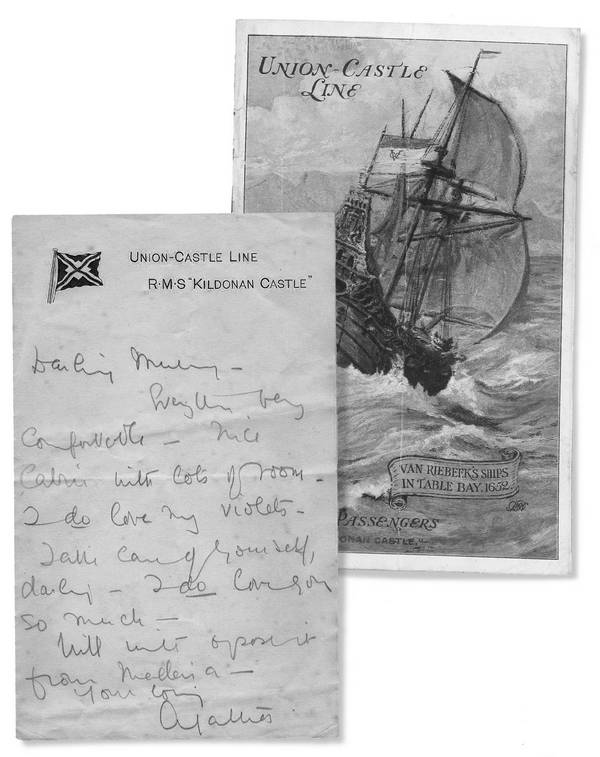 UNION-CASTLE
LINE
VAN RIEBEEK'S SHIPS
IN TABLE BAY. 1652.
PASSENGERS
DONAN CASTLE,"
UNION-CASTLE LINE
R·M·S "KILDONAN CASTLE"
Darling
very
Comfortable – Nice
Cabin with lots of room –
I do love my violets –
Take care of yourself,
darling – I do love you
so much –
Will write
from Madeira –
Your loving
Agatha